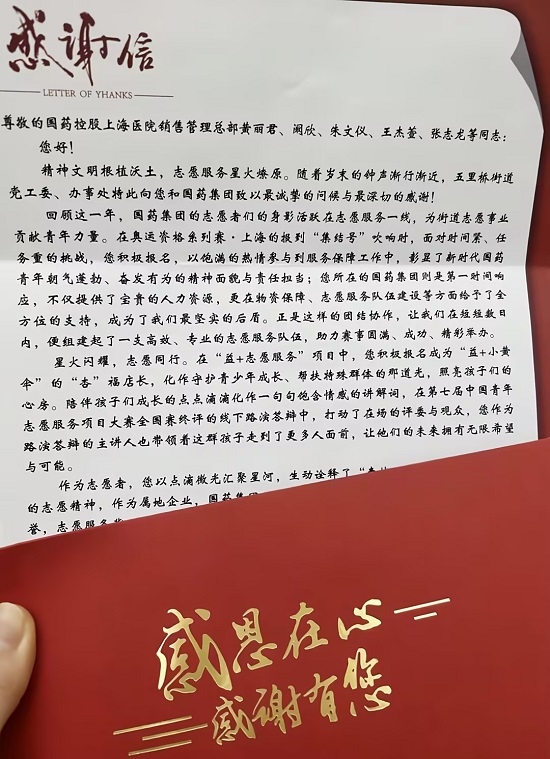 感谢信
LETTER OF YHANKS
尊敬的国药控股上海医院销售管理总部黄丽君、阚欣、朱文仪、王杰萱、张志龙等同志：
您好！
精神文明根植沃土，志愿服务星火燎原。随着岁末的钟声渐行渐近，五里桥街道
党工委、办事处将此向您和国药集团致以最诚挚的问候与最深切的感谢！
回顾这一年，国药集团的志愿者们的身影活跃在志愿服务一线，为街道志愿事业
贡献青年力量。在奥运资格系列赛·上海的报到“集结号”吹响时，面对时间紧、任
务重的挑战，您积极报名，以饱满的热情参与到服务保障工作中，彰显了新时代国药
青年朝气蓬勃、奋发有为的精神面貌与责任担当；您所在的国药集团则是第一时间响
应，不仅提供了宝贵的人力资源，更在物资保障、志愿服务队伍建设等方面给予了全
方位的支持，成为了我们最坚实的后盾。正是这样的团结协作，让我们在短短数日
内，便组建起了一支高效、专业的志愿服务队伍，助力赛事圆满、成功、精彩举办。
星火闪耀，志愿同行。在“益+志愿服务”项目中，您积极报名成为“益+小黄
伞”的“杏”福店长，化作守护青少年成长、帮扶特殊群体的那道光，照亮孩子们的
心房。陪伴孩子们成长的点点滴滴化作一句句饱含情感的讲解词，在第七届中国青年
志愿服务项目大赛全国赛终评的线下路演答辩中，打动了在场的评委与观众，您作为
路演答辩的主讲人也带领着这群孩子走到了更多人面前，让他们的未来拥有无限希望
与可能。
作为志愿者，您以点滴微光汇聚星河，生动诠释了“奉
的志愿精神，作为属地企业，国药集团
誉，志愿服务
感恩在心
感谢有您